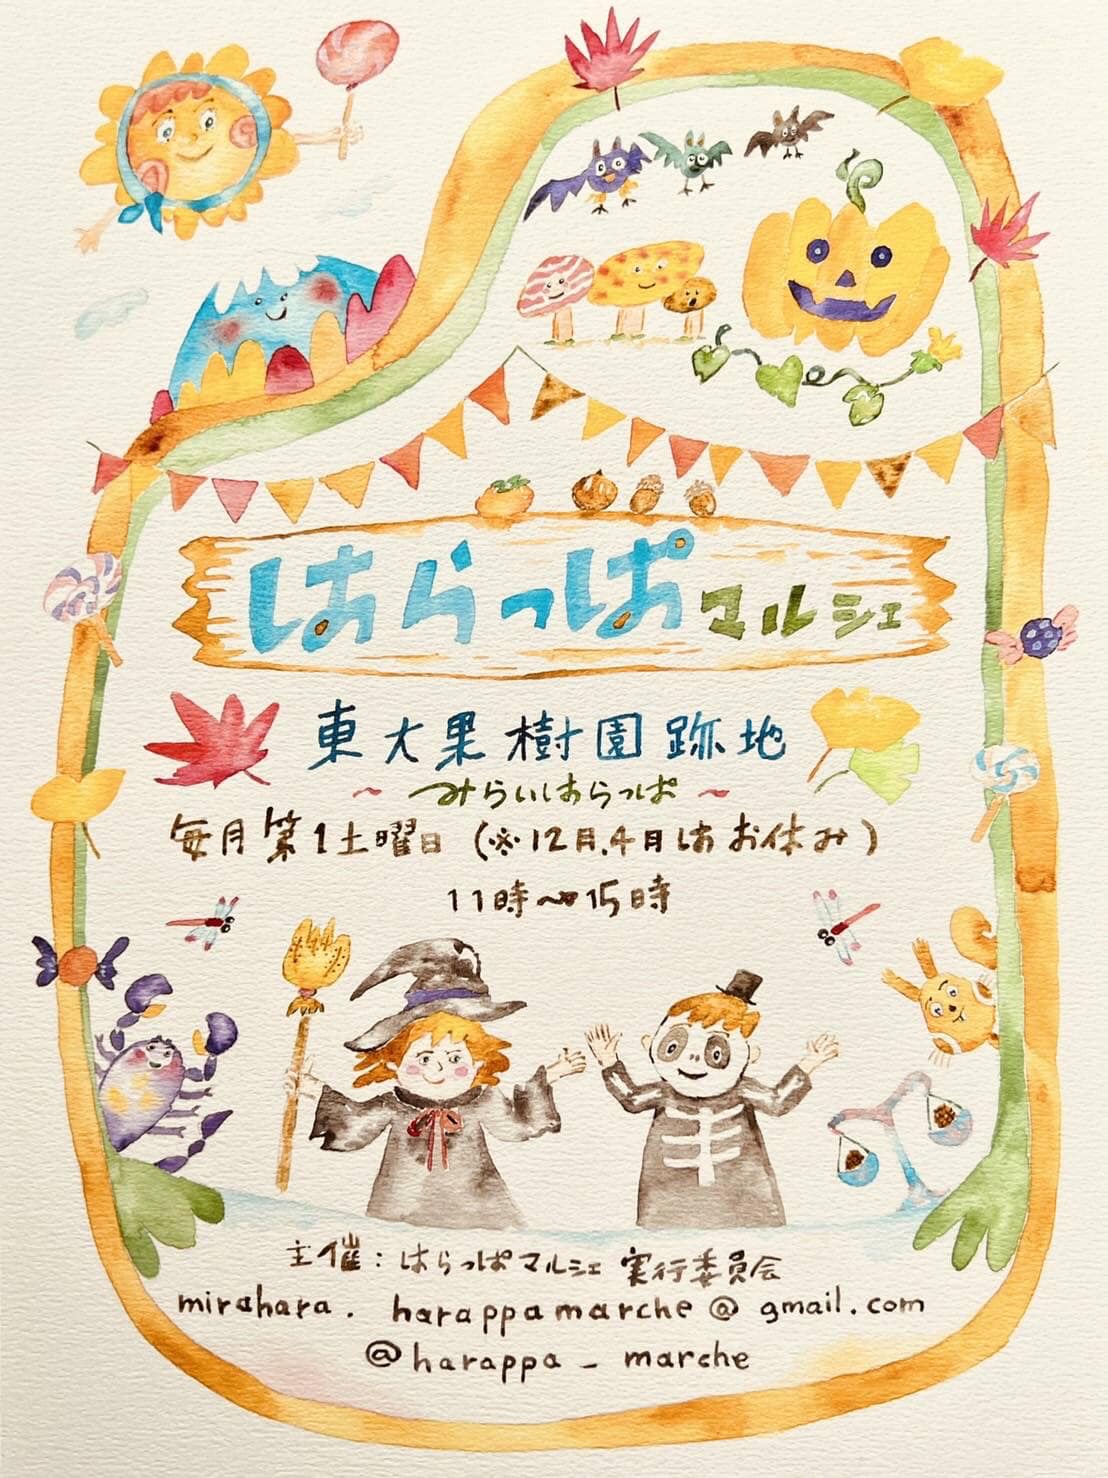 はらっぱマルシェ
東大果樹園跡地
～みらいはらっぱ～
毎月第1土曜日（※12月.4月はお休み）
11時～15時
主催：はらっぱマルシェ実行委員会
mirahara.harappamarche@gmail.com
@harappa_marche